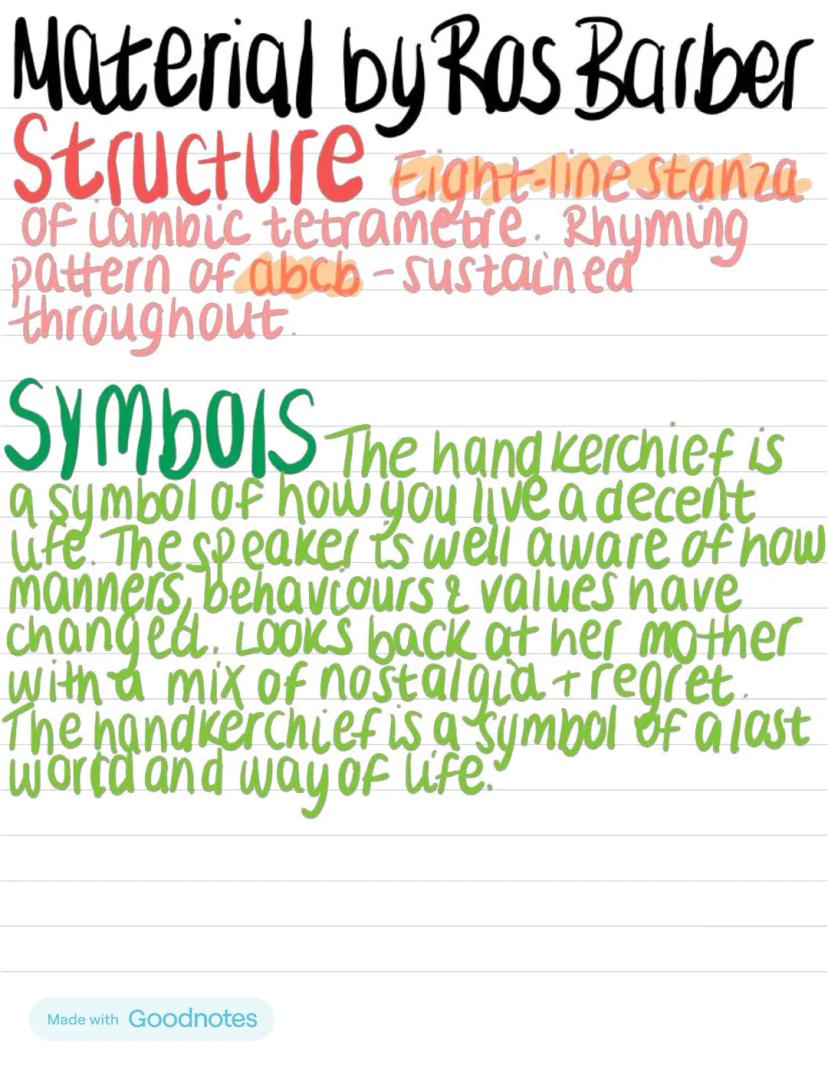 Material by Ros Barber
Structure Eight-line stanza
of iambic tetrametre. Rhyming
pattern of abcb - sustained
throughout.
Symbols The handkerchief is
a symbol of how you live a decent
life. The speaker is well aware of how
manners, behaviours & values have
changed. Looks back at her mother
with a mix of nostalgia + regret.
The handkerchief is a symbol of a last
world and way of life.
Made with Goodnotes